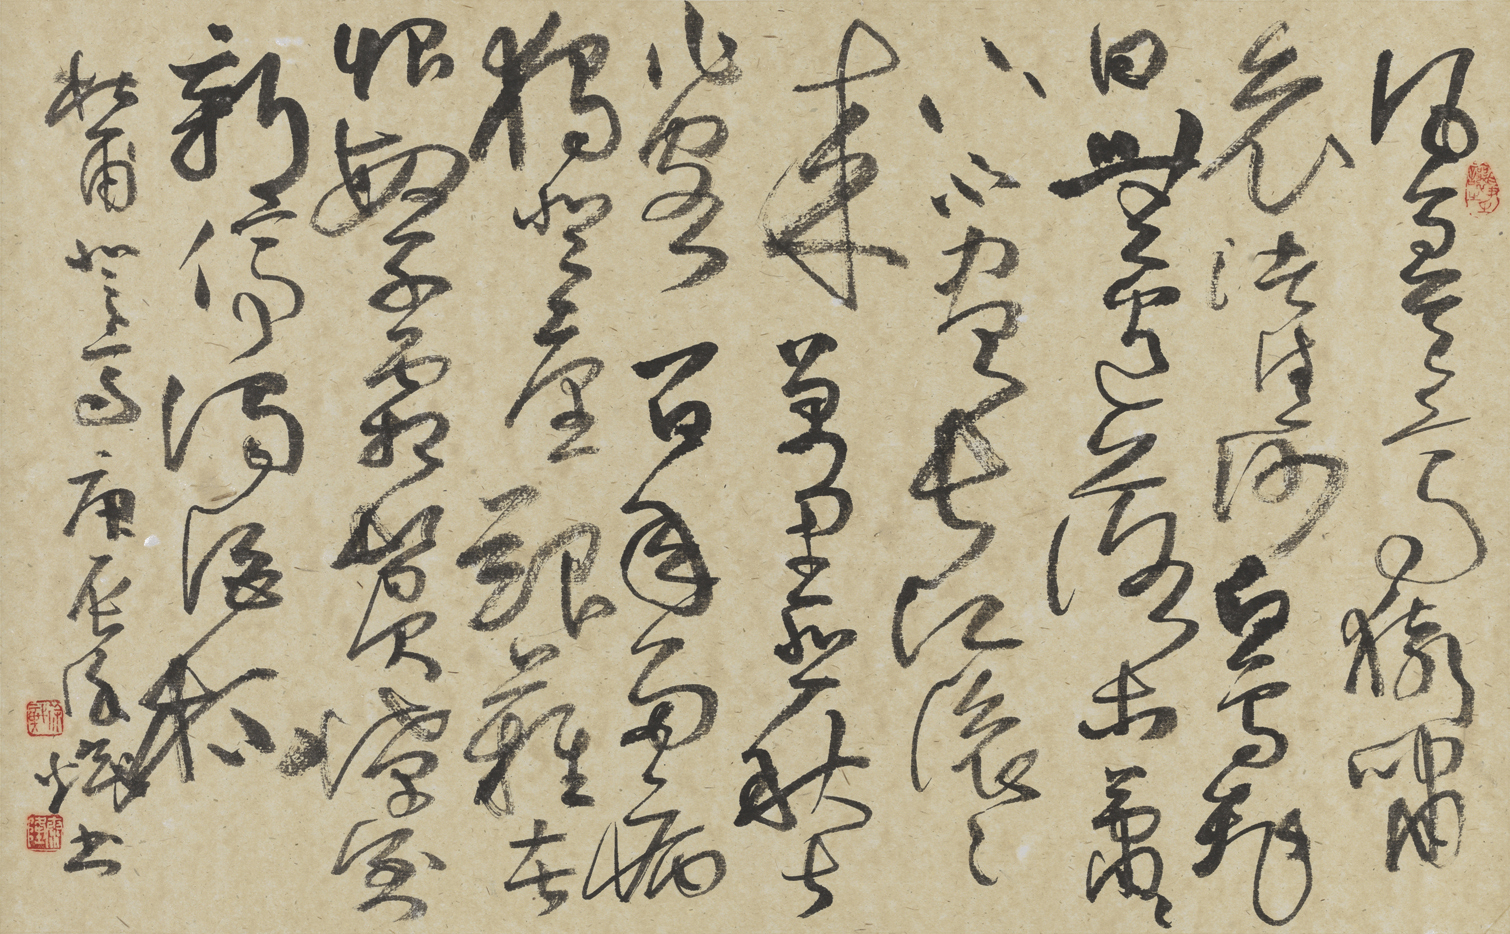 風急天高猿嘯
哀渚清沙白鳥飛
回無邊落木蕭々
下不盡長江滾々
來萬里悲秋常
作客百年多病
獨登臺艱難苦
恨繁霜鬢潦倒
新停濁酒杯
杜甫登高庚辰徐書